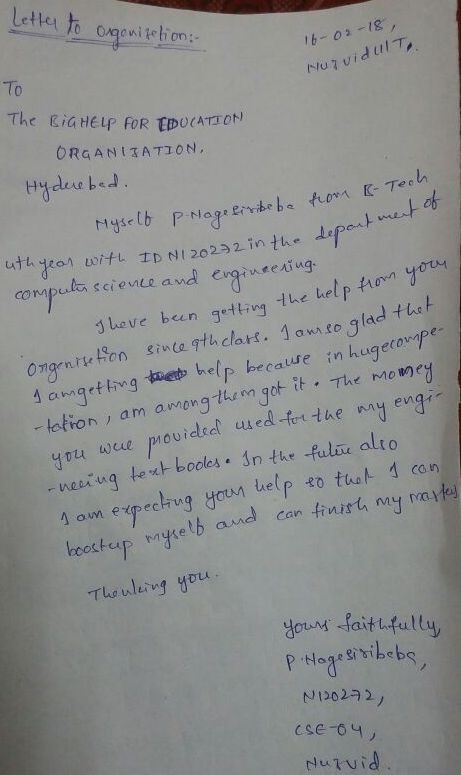 Letter to organisetion:-
16-02-18,
Nuzvid IIIT.
To
The BIGHELP FOR EDUCATION
ORGANIZATION,
Hyderabad.
Myself P.Nagesiribeba from B-Tech
4th year with ID N120272 in the department of
computer science and engineering.
I have been getting the help from your
organisetion since 9th class. I am so glad that
I am getting help because in huge compe-
-tation, am among them got it. The money
you were provided used for the my engi-
-neeing text books. In the future also
I am expecting your help so that I can
boostup myself and can finish my masters
Thanking you.
yours faithfully,
P.Nagesiribeba,
N120272,
CSE-04,
Nuzvid.